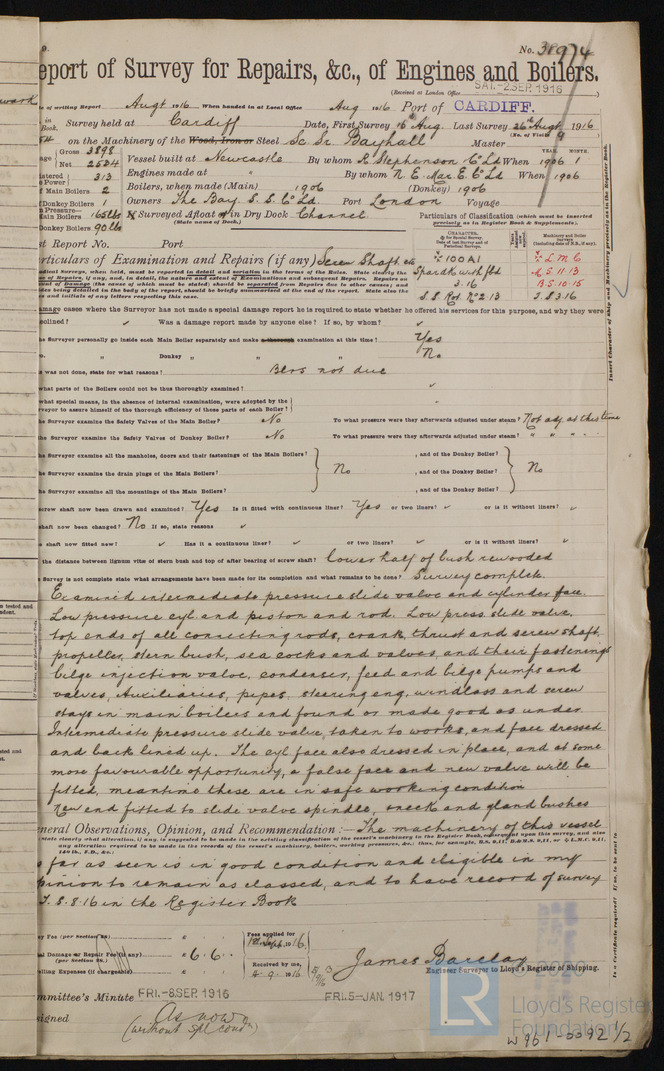 No. 38974
eport of Survey for Repairs, &c., of Engines and Boilers.
(Received at London Office SAT. -2 SEP. 1916)
of writing Report Augt 1916 When handed in at Local Office Aug 1916 Port of CARDIFF.
in Book. Survey held at Cardiff Date, First Survey 16th Aug Last Survey 26th Augt 1916
on the Machinery of the Wood, Iron or Steel Sc Sr Bayhall Master
Gross 3898
Net 2534
Vessel built at Newcastle By whom R Stephenson & Co Ld When 1906 1
YEAR. MONTH.
Engines made at " By whom N. E. Mar. E. Co Ld When 1906
313
Main Boilers 2
Boilers, when made (Main) 1906 (Donkey) 1906
Donkey Boilers 1
Owners The Bay S. S. Co Ld. Port London Voyage
Main Boilers 165 lbs
Surveyed Afloat or in Dry Dock Channel
(State name of Dock.)
Donkey Boilers 90 lbs
Particulars of Classification (which must be inserted
precisely as in Register Book & Supplements).
st Report No. Port
rticulars of Examination and Repairs (if any) Screw Shaft etc
100A1
Spar dk with ftd
3.16
S.S Rot. No 2 13
L M C
M S 11.13
B S 10.15
T.S 3.16
amage cases where the Surveyor has not made a special damage report he is required to state whether he offered his services for this purpose, and why they were
eclined? Was a damage report made by anyone else? If so, by whom?
he Surveyor personally go inside each Main Boiler separately and make a thorough examination at this time? Yes
Donkey " " " No
was not done, state for what reasons? Blrs not due
what parts of the Boilers could not be thoroughly examined?
what special means, in the absence of internal examination, were adopted by the
rveyor to assure himself of the thorough efficiency of those parts of each Boiler?
he Surveyor examine the Safety Valves of the Main Boiler? No To what pressure were they afterwards adjusted under steam? Not adj. at this time
he Surveyor examine the Safety Valves of Donkey Boiler? No To what pressure were they afterwards adjusted under steam? " " " "
he Surveyor examine all the manholes, doors and their fastenings of the Main Boilers? , and of the Donkey Boiler?
he Surveyor examine the drain plugs of the Main Boilers? No , and of the Donkey Boiler? No
he Surveyor examine all the mountings of the Main Boilers? , and of the Donkey Boiler?
screw shaft now been drawn and examined? Yes Is it fitted with continuous liner? Yes or two liners? or is it without liners?
shaft now been changed? No If so, state reasons
e shaft now fitted new? Has it a continuous liner? or two liners? or is it without liners?
the distance between lignum vitæ of stern bush and top of after bearing of screw shaft? Lower half of bush rewooded
Survey is not complete state what arrangements have been made for its completion and what remains to be done? Survey complete.
Examined intermediate pressure slide valve and cylinder face.
Low pressure cyl. and piston and rod. Low press slide valve.
top ends of all connecting rods, crank, thrust and screw shaft,
propeller, stern bush, sea cocks and valves, and their fastenings
bilge injection valve, condenser, feed and bilge pumps and
valves, Auxiliaries, pipes, steering eng, windlass and screw
stays in main boilers and found or made good as under
Intermediate pressure slide valve, taken to works, and face dressed
and back lined up. The cyl face also dressed in place, and at some
more favourable opportunity, a false face and new valve will be
fitted, meantime these are in safe working condition
New end fitted to slide valve spindle, neck and gland bushes
neral Observations, Opinion, and Recommendation:— The machinery of this vessel
s far as seen is in good condition and eligible in my
opinion to remain as classed, and to have record of survey
T.S. 8.16 in the Register Book
y Fee (per Section 28) £
al Damage or Repair Fee (if any) £ 6. 6.
(per Section 28.)
elling Expenses (if chargeable) £
Fees applied for
1st Sept. 1916.
Received by me,
4-9-1916
James Barclay
Engineer Surveyor to Lloyd's Register of Shipping.
mmittee's Minute FRI. -8 SEP. 1916 FRI. 5-JAN. 1917
signed As now
(without spl condn)
Insert Character of Ship and Machinery precisely as in the Register Book.
© 2020
LR
Lloyd's Register
Foundation
W961-0092 1/2